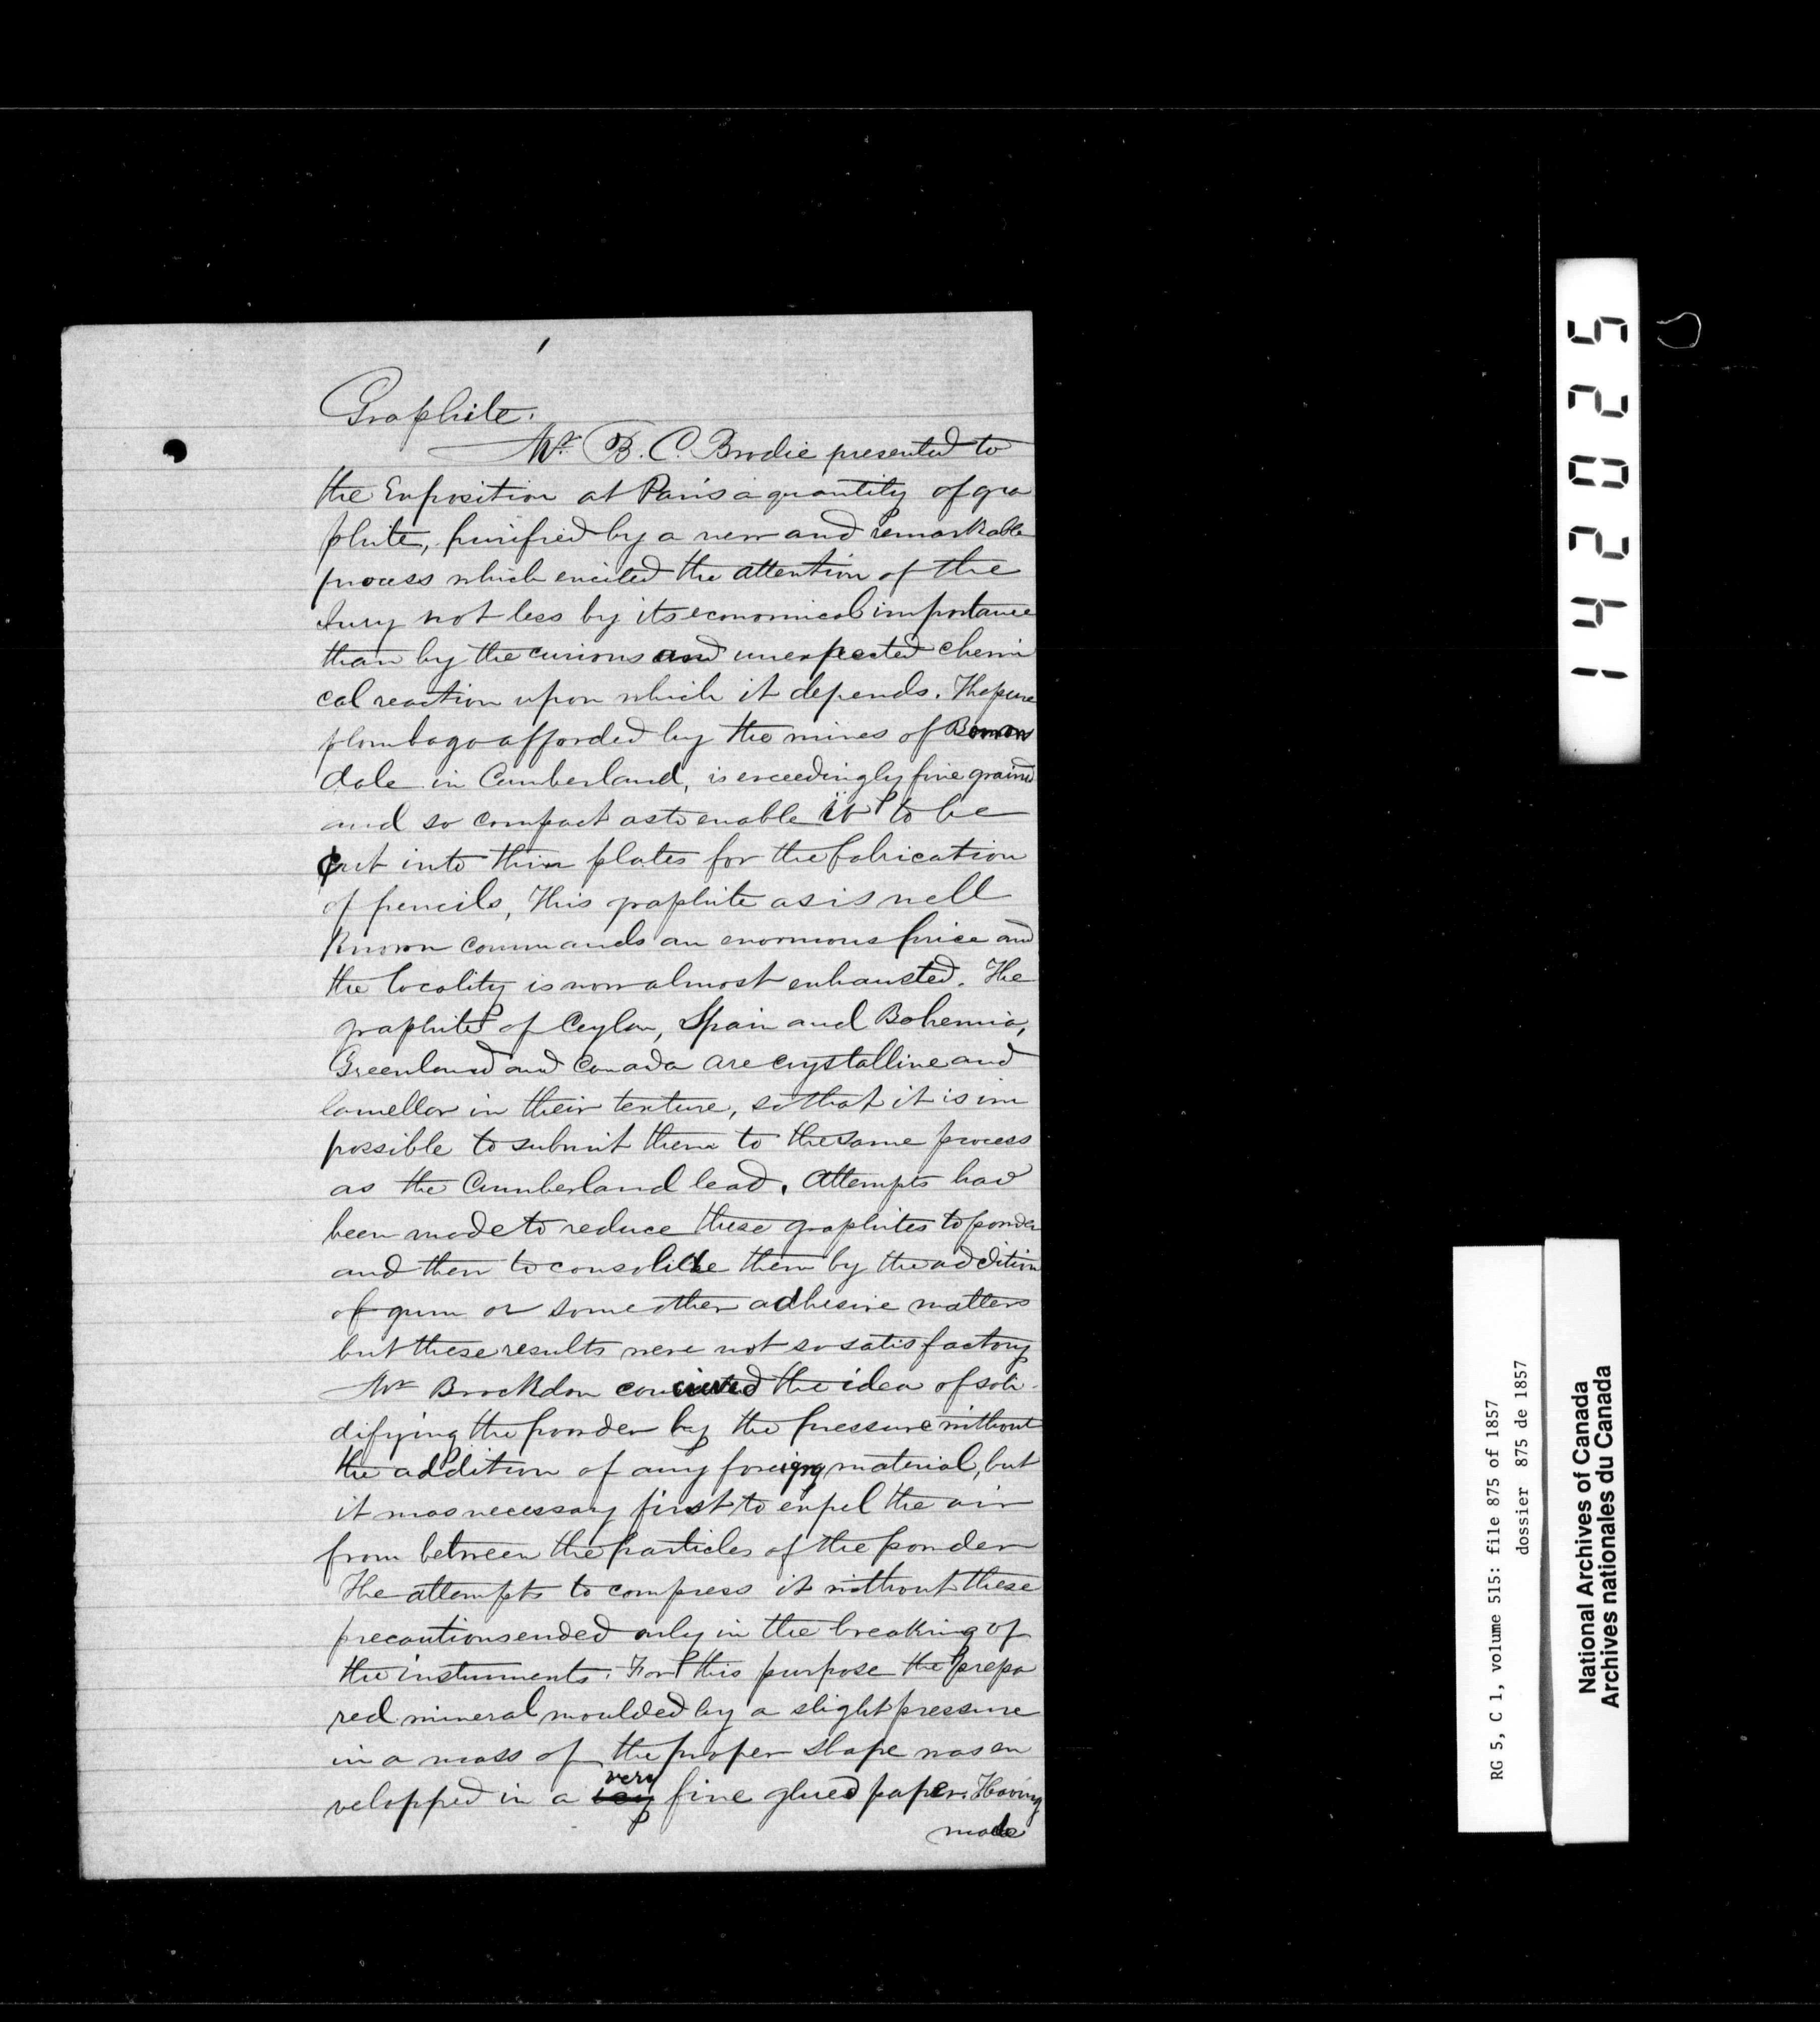 1
Graphite.
Mr. B. C. Brodie presented to
the Exposition at Paris a quantity of gra
phite, purified by a new and remarkable
process which excited the attention of the
Jury not less by its economical importance
than by the curious and unexpected chemi
cal reaction upon which it depends. The pure
plombago afforded by the mines of Borrow
dale in Cumberland, is exceedingly fine grained
and so compact as to enable it to be
cut into thin plates for the fabrication
of pencils, This graphite as is well
known commands an enormous price and
the locality is now almost exhausted. The
graphites of Ceylon, Spain and Bohemia,
Greenland and Canada are crystalline and
lamellar in their texture, so that it is im
possible to submit them to the same process
as the Cumberland lead. Attempts had
been made to reduce these graphites to powder
and then to consolide them by the addition
of gum or some other adhesive matters
but these results were not so satisfactory
Mr Brockdon concieved the idea of soli-
difying the powder by the pressure without
the addition of any foreign material, but
it was necessary first to expel the air
from between the particles of the powder
The attempts to compress it without these
precautions ended only in the breaking of
the instruments. For this purpose the prepa
red mineral moulded by a slight pressure
in a mass of the proper shape was en
velopped in a very fine glued paper. Having
made
142025
RG 5, C 1, volume 515: file 875 of 1857
dossier 875 de 1857
National Archives of Canada
Archives nationales du Canada